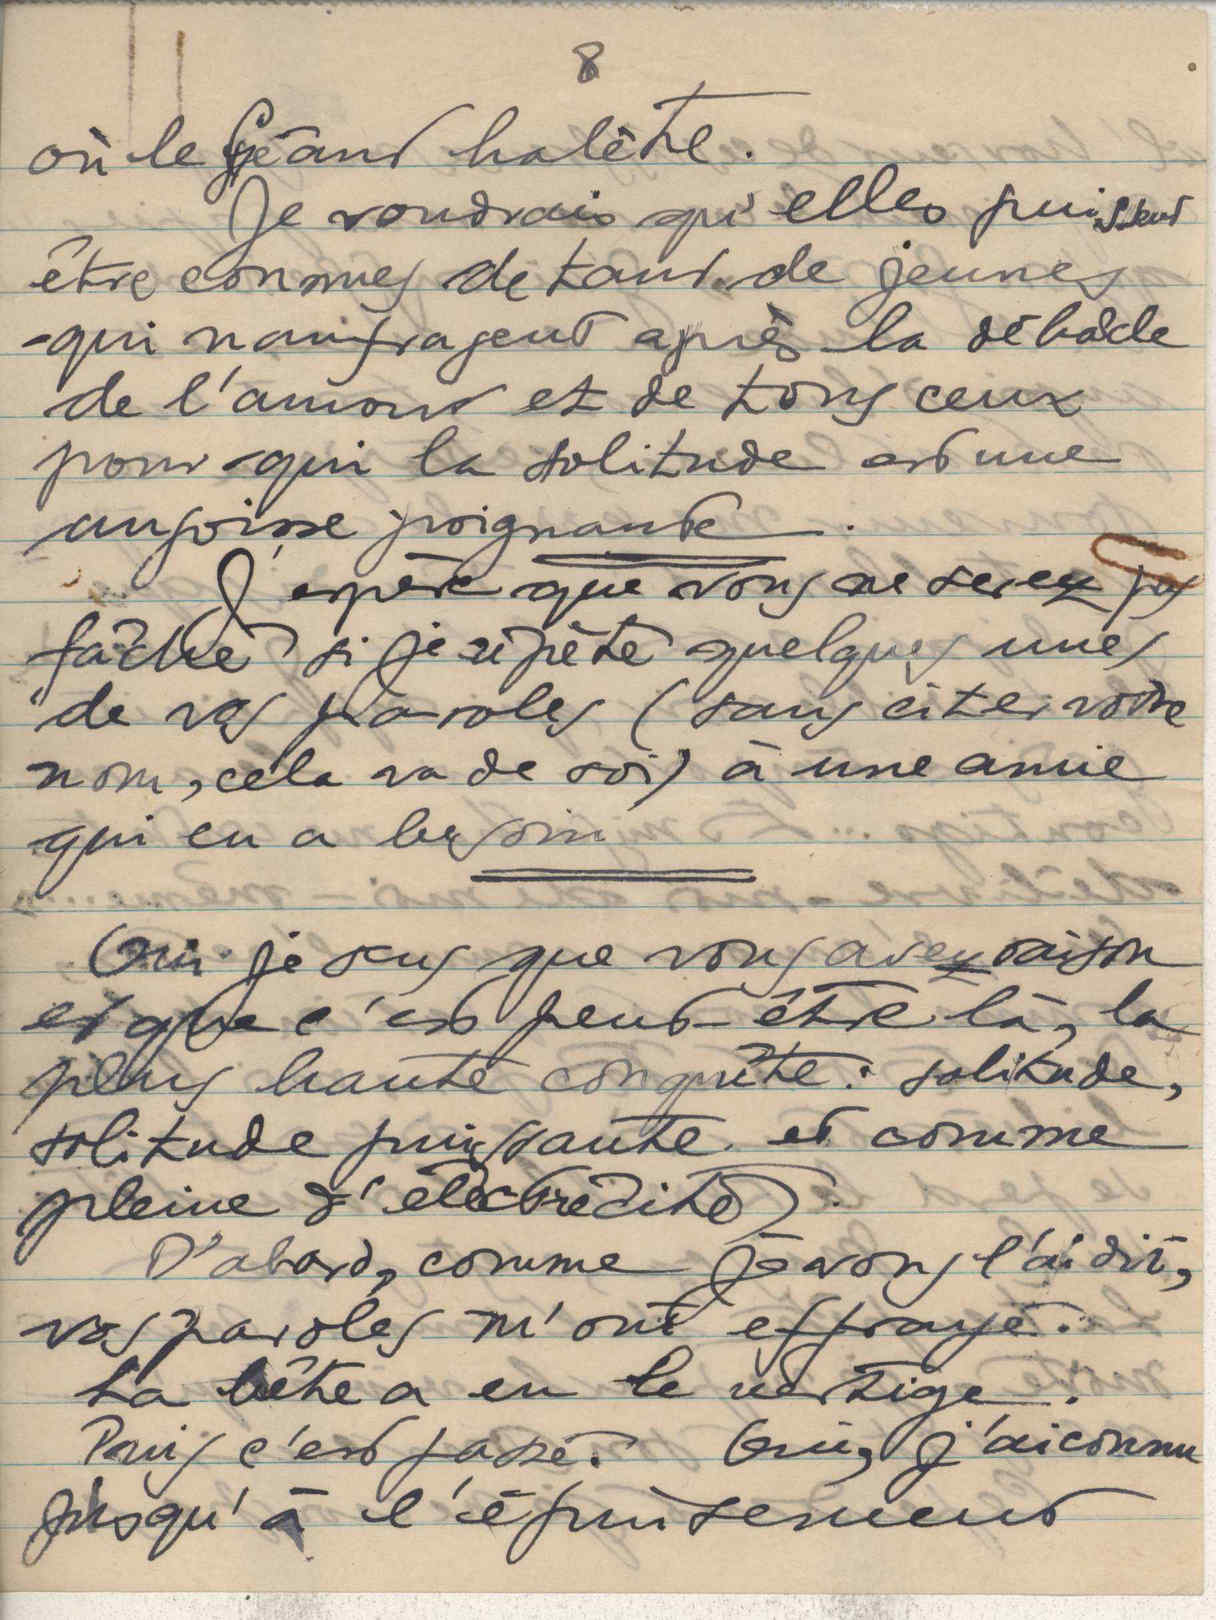 8
où le Géant halète.
Je voudrais qu'elles puissent
être connues de tant de jeunes
qui naufragent après la débâcle
de l'amour et de tous ceux
pour qui la solitude est une
angoisse poignante.
J'espère que vous ne serez pas
fâché si je répète quelques unes
de vos paroles (sans citer votre
nom, cela va de soi) à une amie
qui en a besoin
Oui je sens que vous avez raison
et que c'est peut-être là, la
plus haute conquête: solitude,
solitude puissante et comme
pleine d'électrécité.
D'abord, comme je vous l'ai dit,
vos paroles m'ont effrayé.
La bête a eu le vertige.
Puis c'est passé. Oui, j'ai connu
jusqu'à l'épuisement